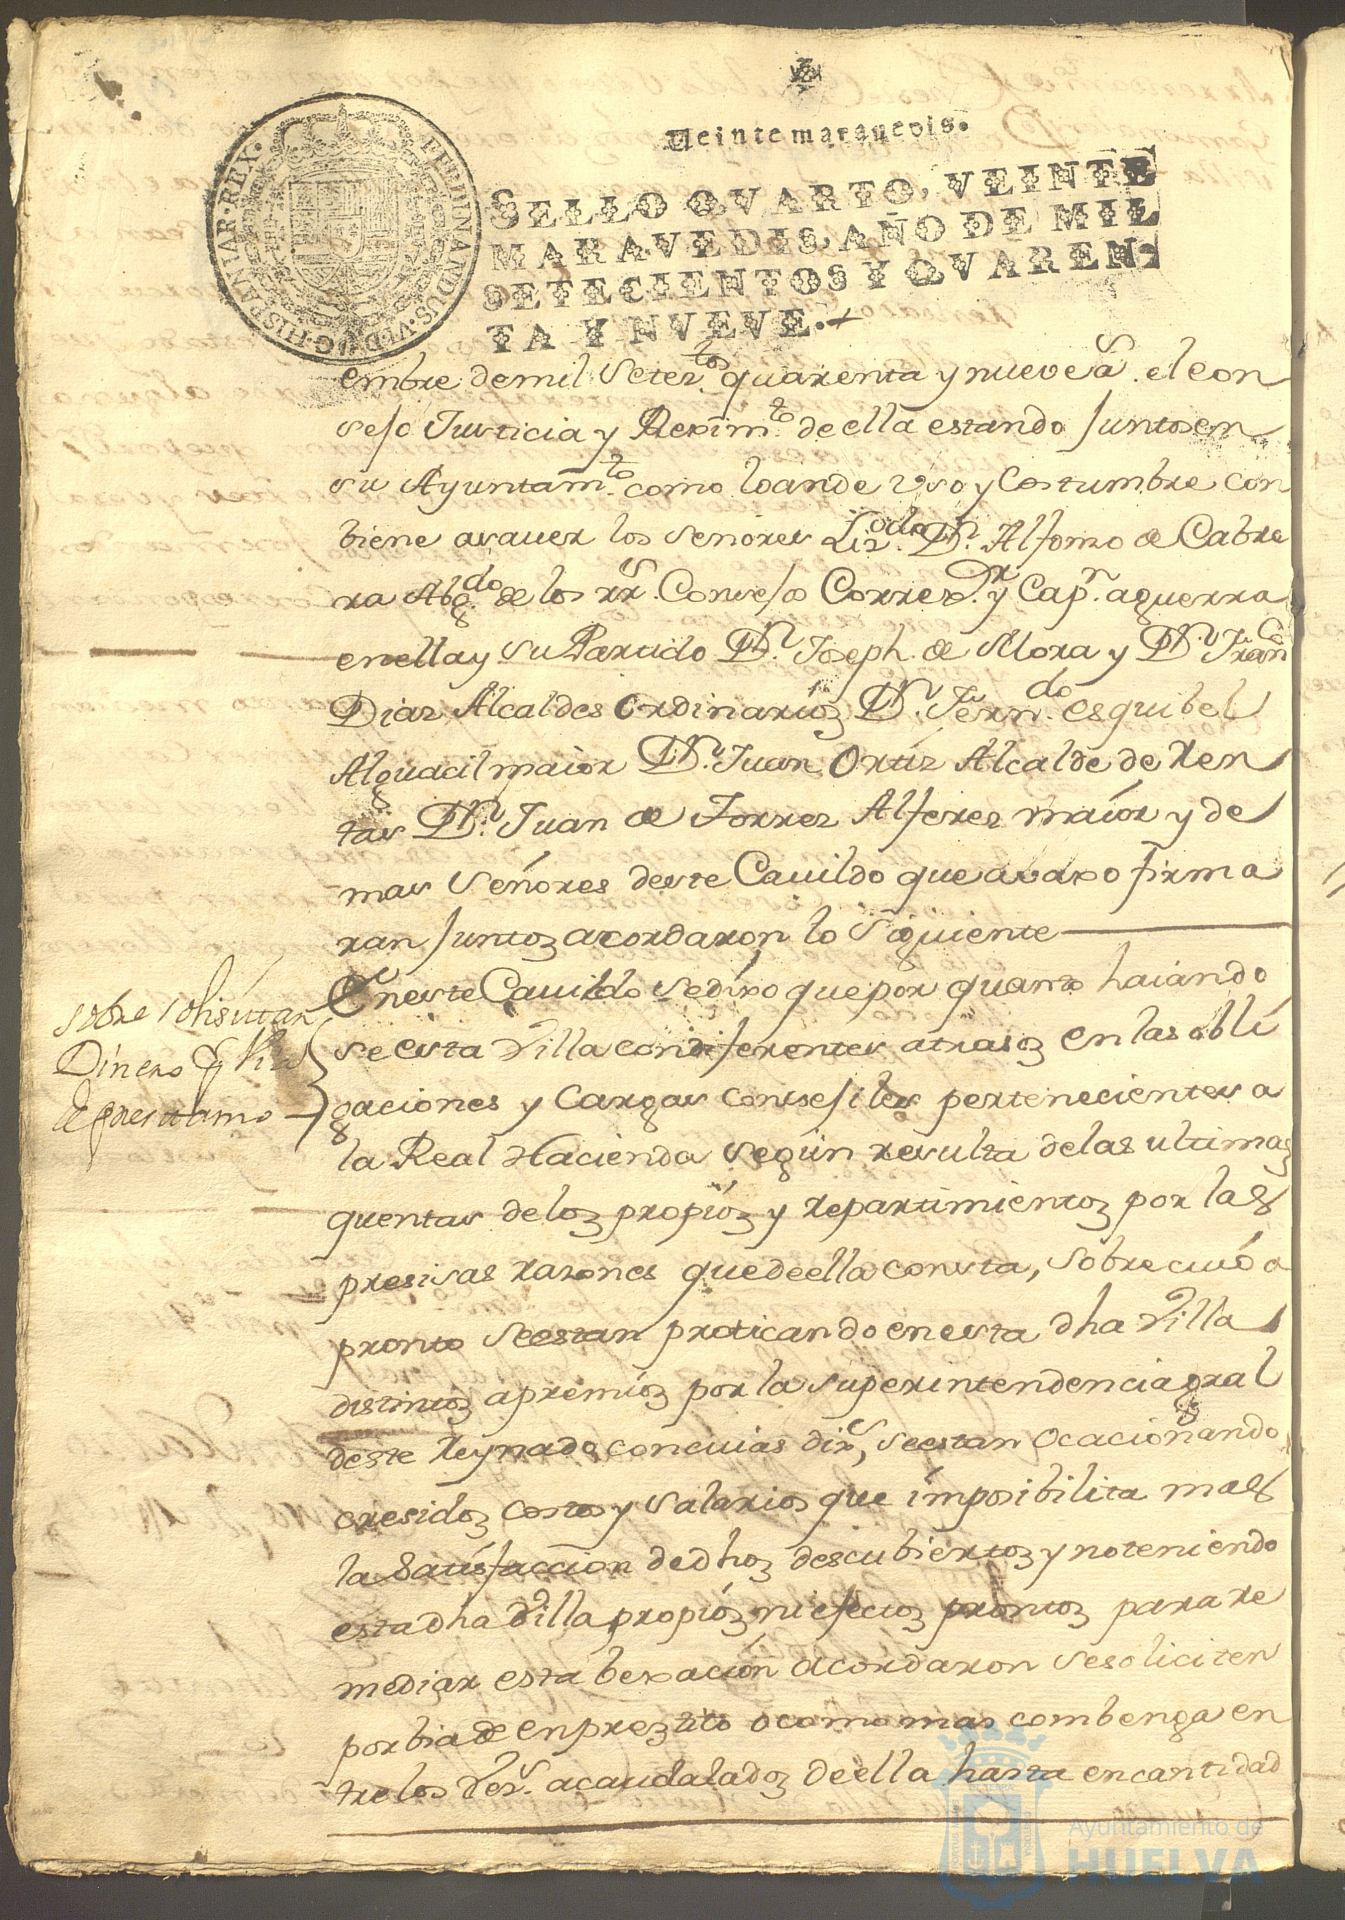 Veinte marauedis.
SELLO QVARTO, VEINTE
MARAVEDIS, AÑO DE MIL
SETECIENTOS Y QVAREN-
TA Y NVEVE.
FERDINANDUS·VI·D·G·HISPANIAR·REX·
embre de mil Setez.tos quarenta y nueve a.s el con
sejo Justicia y Reximto de ella estando Juntos en
su Ayuntamto como lo an de uso y Costumbre con
biene a saver los Señores Lizdo Dn. Alfonso de Cabre
ra Abgdo de los rrs. Consejos Correxr. y Capn. a guerra
en ella y su Partido Dn. Joseph de Mora y Dn. Franco
Diaz Alcaldes Ordinarios Dn. Ferndo esquibel
Alguacil maior Dn. Juan Ortiz Alcalde de Ren
tas Dn. Juan de Torrez Alferez maior y de
mas Señores deste Cauildo que abaxo firma
ran Juntos acordaron lo Siguiente
En este Cauildo se dixo que por quanto haiando
se esta Villa con diferentes atrasos en las obli
gaciones y Cargas consejiles pertenecientes a
la Real Hacienda según resulta de las ultimas
quentas de los propios y repartimientos por las
presisas razones que de ella consta, sobre cuio a
pronto se estan praticando en esta dha Villa
distintos apremios por la superintendencia gral
deste Reynado con cuias dixs, se estan ocacionando
cresidos costos y salarios que imposibilita mas
la Satisfaccion de dhos descubiertos y no teniendo
esta dha Villa propios ni efectos prontos para re
mediar esta bexación acordaron se soliciten
por bia de enprez.tito o como mas combenga en
tre los Vez.s acaudalados de ella hasta en cantidad
sobre solisitar
Dinero
de prestamo
Ayuntamiento de
HUELVA